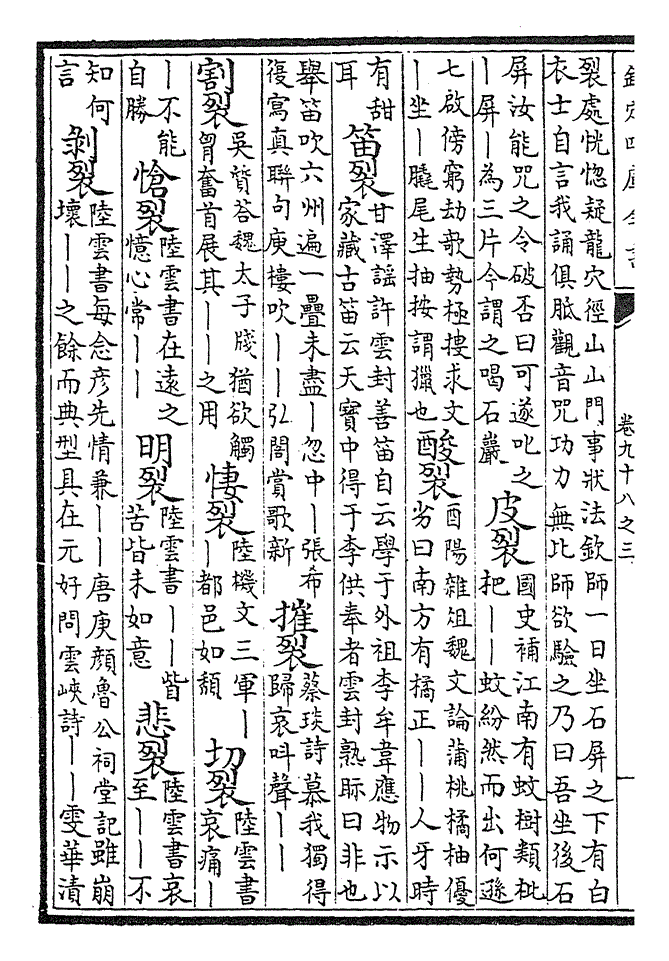 欽定四庫全書
卷九十八之三
一
裂處恍惚疑龍穴徑山山門事狀法欽師一日坐石屏之下有白
衣士自言我誦俱胝觀音咒功力無比師欲驗之乃曰吾坐後石
屏汝能咒之令破否曰可遂叱之
丨屏丨為三片今謂之喝石巖
皮裂
國史補江南有蚊樹類枇
把丨丨蚊紛然而出何遜
七啟傍窮劫歌勢極摟求文
丨坐丨驍尾生抽按謂獵也
酸裂
酉陽雜俎魏文論蒲桃橘柚優
劣曰南方有橘正丨丨人牙時
有甜
耳
笛裂
甘澤謡許雲封善笛自云學于外祖李牟韋應物示以
家藏古笛云天寶中得于李供奉者雲封熟眎曰非也
舉笛吹六州遍一疊未盡丨忽中丨張希
復寫真聯句庾樓吹丨丨弘閣賞歌新
摧裂
蔡琰詩慕我獨得
歸哀呌聲丨丨
割裂
吳質荅魏太子牋猶欲觸
胷奮首展其丨丨之用
悽裂
陸機文三軍丨
丨都邑如頽
切裂
陸雲書
哀痛丨
丨不能
自勝
愴裂
陸雲書在遠之
憶心常丨丨
明裂
陸雲書丨丨皆
苦皆未如意
悲裂
陸雲書哀
至丨丨不
知何
言
剝裂
陸雲書每念彦先情兼丨丨唐庚顔魯公祠堂記雖崩
壞丨丨之餘而典型具在元好問雲峽詩丨丨雯華漬